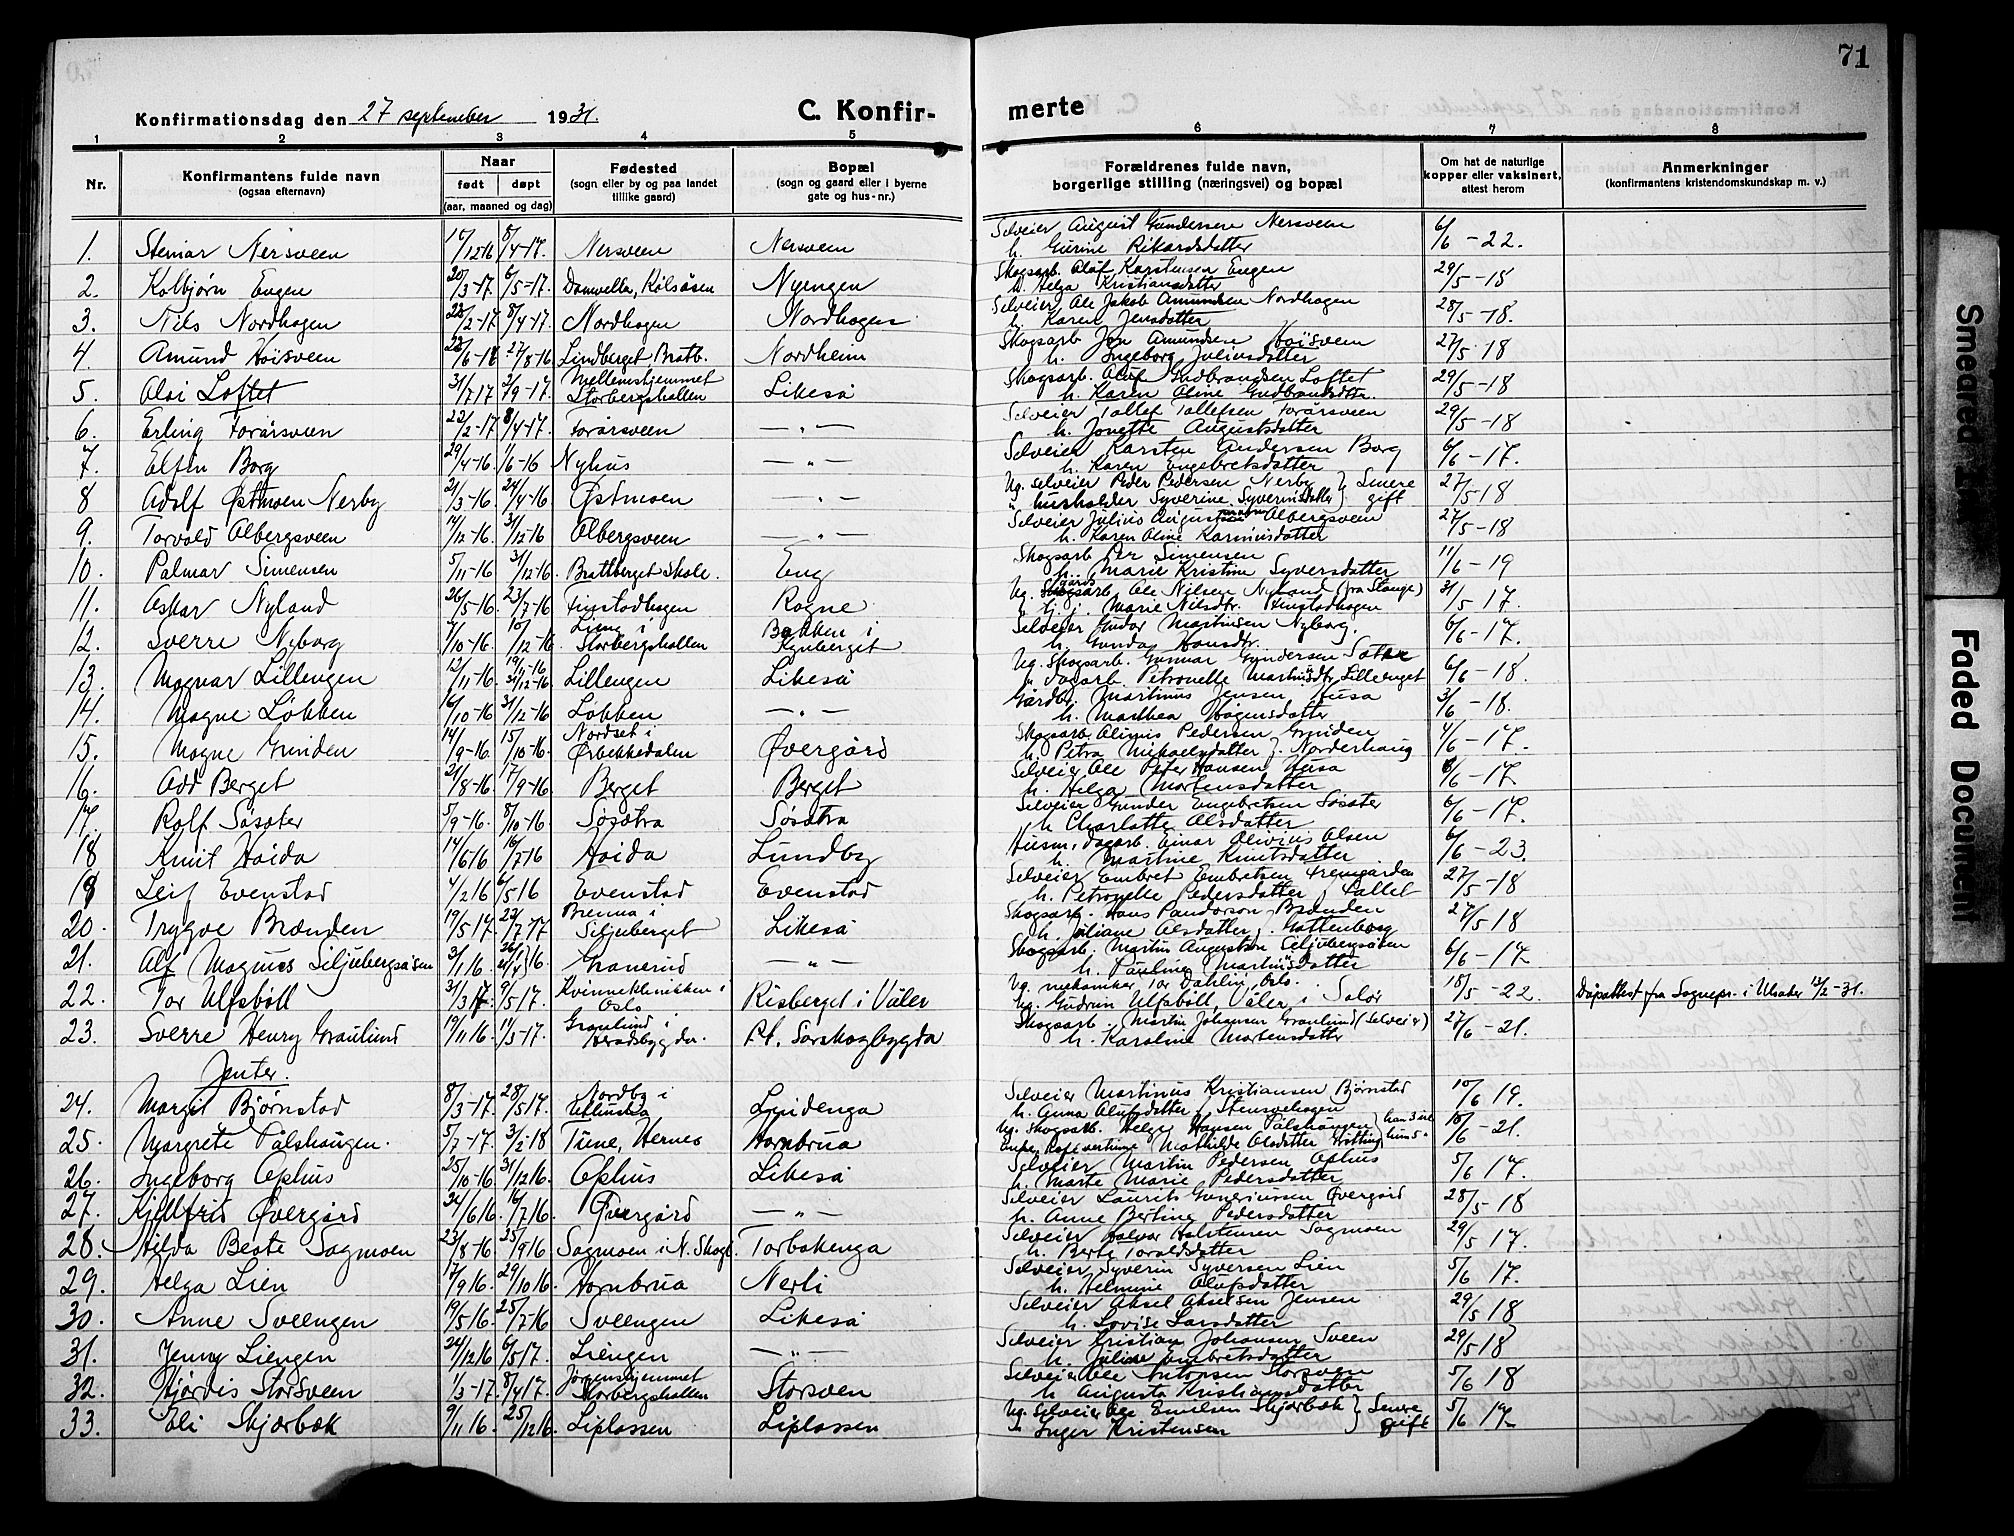 71
Konfirmationsdag den 27 september 1931.
C. Konfirmerte
1 2 3 4 5 6 7 8
Nr.
Konfirmantens fulde navn (ogsaa efternavn)
Naar født døpt (aar, maaned og dag)
Fødested (sogn eller by og paa landet tillike gaard)
Bopæl (sogn og gaard eller i byerne gate og hus-nr.)
Forældrenes fulde navn, borgerlige stilling (næringsvei) og bopæl
Om hat de naturlige kopper eller vaksinert, attest herom
Anmerkninger (konfirmantens kristendomskundskap m. v.)
1. Steinar Nersveen 17/12 16 8/4-17. Nersveen Nersveen Selveier August Gundersen Nersveen h. Gurine Rikardsdatter 6/6-22.
2. Kolbjørn Engen 20/3-17 6/5-17. Damvella, Kølsåsen Nyengen Skogsarb. Olaf Karstensen Engen h. Helga Kristiansdatter 29/5-18
3. Nils Nordhagen 22/2-17 8/4-17. Nordhagen Nordhagen Selveier Ole Jakob Amundsen Nordhagen h. Karen Jensdatter 28/5-18.
4. Amund Høisveen 23/6-16 27/8-16 Lindberget Bratb. Nordheim Skogsarb Jon Amundsen Høisveen h. Ingeborg Juliusdatter 27/5-18
5. Olai Loftet 31/7 17 2/9-17. Mellemhjemmet Storbergshallen Likeså Skogsarb. Oluf Gudbrandsen Loftet h. Karen Oline Gudbrandsdtr. 29/5-18
6. Erling Forårsveen 22/2-17 8/4-17. Forårsveen — „ — Selveier Tollef Tollefsen Forårsveen h. Jonette Augustsdatter 29/5-18
7. Elfin Borg 29/4-16. 1/6-16 Nyhus — „ — Selveier Karsten Andersen Borg h. Karen Engebretsdatter 6/6-17.
8 Adolf Østmoen Nerby 21/3-16 24/4-16 Østmoen — „ — Ug. selveier Peder Pedersen Nerby } Senere „ husholder Syverine Syverinsdatter } gift 27/5-18
9. Torvald Olbergsveen 14/12-16. 31/12-16 Olbergsveen — „ — Selveier Julius Augustsen Olbergsveen h. Karen Oline Karinusdatter 27/5-18
10. Palmar Simensen 5/11-16 31/12-16. Brattberget Skole. Eng Skogsarb Per Simensen h. Marie Kristine Syversdatter 11/6-19
11. Oskar Nyland 26/5-16. 23/7-16 Finstadhagen Rogne Ug. gårds Skogsarb Ole Nilsen Nyland (fra Stange) Marie Nilsdtr. Finstadhagen 31/5 17.
12. Sverre Nyborg 7/10-16 10/12-16. Lieng i Storbergshallen Bakken i Kynberget Selveier Gudar Martinsen Nyborg. h. Gunda Hansdtr. 6/6-17.
13. Magnar Lillengen 12/11-16 19/11-16 31/12-16. Lillengen Likeså Ug. Skogsarb. Gunnar Gundersen „ Dagarb. Petronelle Martinsdtr. Lillenget 6/6-18.
14. Magne Løkken 16/10-16 31/12-16 Løkken — „ — Gårdbr. Martinus Jensen Husa h. Marthea Hågensdatter 3/6-18.
15. Magne Grinden 14/9-16. 15/10-16. Nordset i Ørbekkedalen Øvergård Skogsarb. Olinus Pedersen Grinden h. Petra Mikaelsdatter, Norderhaug 4/6-17.
16. Odd Berget 21/8-16 17/9-16 Berget Berget Selveier Ole Peter Hansen Husa h. Helga Mortensdatter 6/6-17
17. Rolf Søsæter 5/9-16. 8/10-16 Søsætra Søsætra Selveier Gunder Engebretsen Søsæter h Charlotte Olsdatter 6/6-17.
18 Knut Hoida 14/6-16 16/7 16 Hoida Lundby Husm. dagarb. Einar Olivius Olsen h. Martine Knutsdatter 6/6-23.
19 Leif Evenstad 4/2 16 6/5 16 Evenstad Evenstad Selveier Embret Embretsen h. Petronelle Pedersdatter 27/5-18
20. Trygve Brænden 19/5 17. 22/7 17 Brenna i Siljuberget Likeså Skogsarb. Hans Brænden h. Juliane Olsdatter, Gottenborg 27/5 18
21. Alf Magnus Siljubergsåsen 3/1 16. 16. Granerud — „ — Skogsarb. Martin Augustsen Siljubergsåsen h. Pauline Martinsdatter 6/6-17
22. Tor Ulfsbøll 31/3 17. 9/5 17. Kvinneklinikken i Oslo Risberget i Våler Ug. mekaniker Tor Dahlin, Oslo. Ug. Gudrun Ulfsbøll, Våler i Solør 18/5-22. Dåpsattest fra Sognepr. i Ulsaker 13/2-31.
23. Sverre Henry Graulund 19/11 16. 11/3-17. Graulund i Heradsbygda. P.t. Sørskogbygda Skogsarb. Martin Johansen Graulund (selveier) h. Karoline Mortensdatter 27/6-21.
Jenter.
24. Margit Bjørnstad 8/3-17. 28/5 17. Nordby i Lindenga Selveier Martinus Kristiansen Bjørnstad h. Anna Olufsdatter, Stensvehagen 10/6 19.
25. Margrete Pålshaugen. 5/7-17. 3/2-18 Tune, Hernes Hornbrua Ug. Skogsarb. Helge Hansen Pålshaugen Mathilde Olsdatter 10/6-21.
26. Ingeborg Ophus 25/10-16 31/12 16. Ophus Likeså Selveier Martin Pedersen Ophus h. Marte Marie Pedersdatter 5/6 17.
27. Kjellfrid Øvergård 24/6 16. 16/7 16. Øvergård — „ — Selveier Laurits Øvergård h. Anne Bertine Pedersdatter 28/5-18
28. Hilda Beate Sagmoen 23/8-16. 25/9 16 Sagmoen i N. Skogb. Torbakenga Selveier Halvor Halstensen Sagmoen h. Berte Toraldsdatter 29/5 17.
29. Helga Lien 17/9 16. 29/10 16. Hornbrua Nerli Selveier Syverin Syversen Lien h. Helmine Olufsdatter 5/6 17.
30. Anne Sveengen 19/5 16. 25/7-16 Sveengen Likeså Selveier Aksel Akselsen Jensen h. Lovise Larsdatter 29/5 18
31. Jenny Liengen 24/12 16 6/5 17. Liengen — „ — Selveier Kristian Johansen Sveen h. Juline Embretsdatter 29/5 18
32. Hjørdis Storsveen 1/3-17. 8/4 17. Jørgenshjemmet Storbergshallen Storsveen Selveier Ole Antonsen Storsveen h Augusta Kristiansdatter 5/6 18
33. Eli Skjærbæk 9/11 16 25/12 16. Liplassen Liplassen Ug. Selveier Ole Emilsen Skjærbæk } Senere „ Inger Kristensen } gift 5/6 17
Smeared Ink
Faded Document